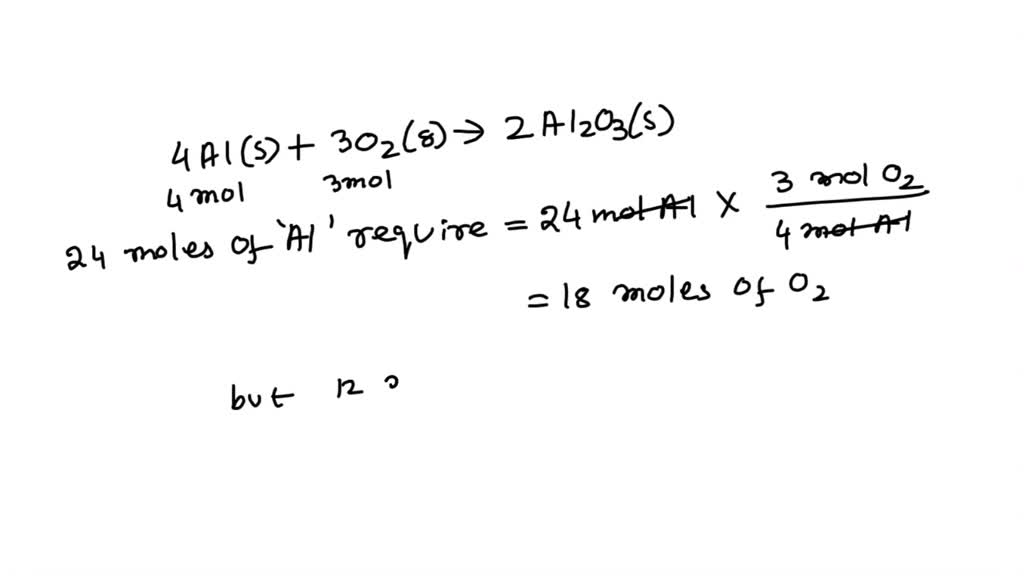 4Al(s) + 3O₂(g) → 2Al₂O₃(s)
4 mol 3mol
24 moles of 'Al' require = 24 mol Al × 3 mol O₂ / 4 mol Al
= 18 moles of O₂
but 12